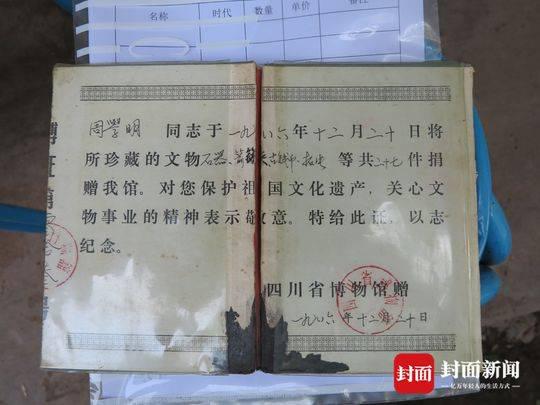 名称 时代 数量 单价 备注
周学明 同志于一九八六年十二月二十日将
所珍藏的文物石器、 等共二十七件捐
赠我馆。对您保护祖国文化遗产,关心文
物事业的精神表示敬意。特给此证,以志
纪念。
四川省博物馆赠
一九八六年十二月二十日
封面 封面新闻
亿万年轻人的生活方式